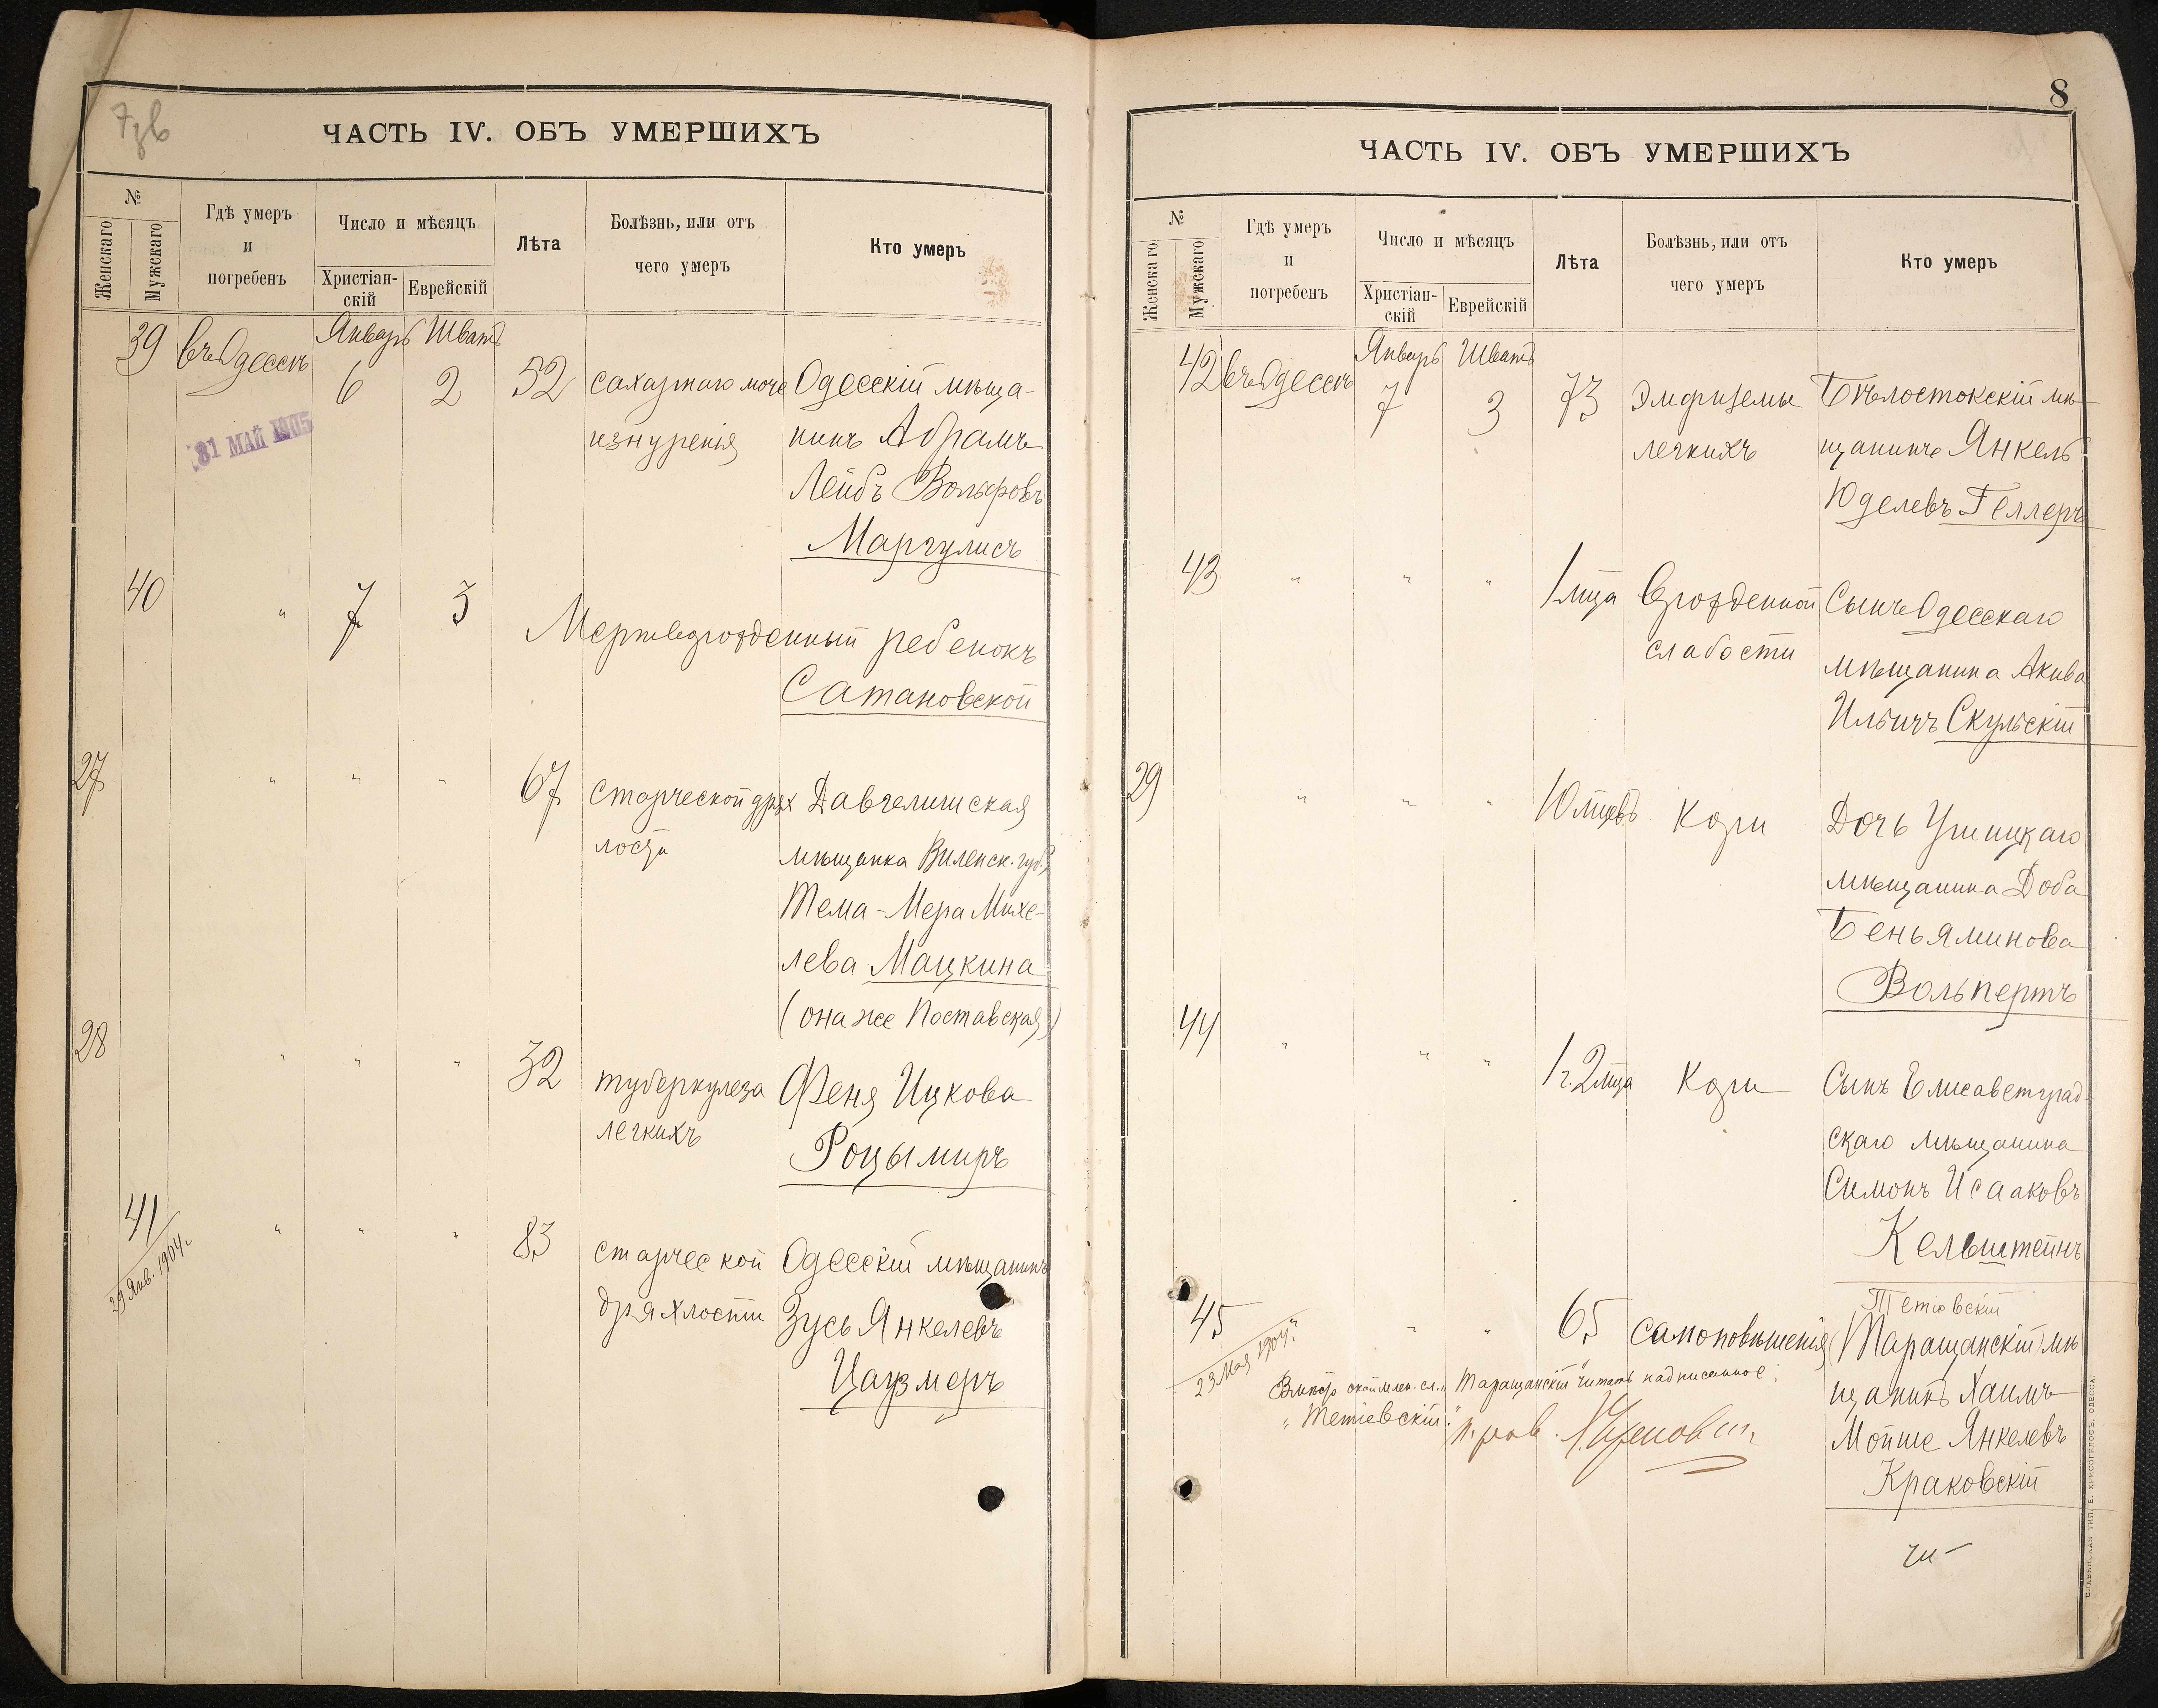 7зв
ЧАСТЬ IV. ОБЪ УМЕРШИХЪ
№
Женскаго
Мужскаго
Гдѣ умеръ
и
погребенъ
Число и мѣсяцъ
Христіан-
скій
Еврейскій
Лѣта
Болѣзнь, или отъ
чего умеръ
Кто умеръ
39 въ Одессѣ Январь Шватъ
6 2 52 сахарнаго моче Одесскій мѣща-
31 МАЙ 1905
изнуренія нинъ Абрамъ
Лейбъ Вольфовъ
Маргулисъ
40 " 7 3 Мертворожденный ребенокъ
Сатановской
27 " " " 67 старческой дрях Давгелишская
лости мѣщанка Виленск. губ.
Тема-Мера Михе-
лева Мацкина
(она же Поставская)
28 " " " 32 туберкулеза Феня Ицкова
легкихъ Роцымиръ
41 " " " 83 старческой Одесскій мѣщанинъ
29 Янв. 1904 г.
дряхлости Зусь Янкелевъ
Цаузмеръ
8
ЧАСТЬ IV. ОБЪ УМЕРШИХЪ
№
Женскаго
Мужскаго
Гдѣ умеръ
и
погребенъ
Число и мѣсяцъ
Христіан-
скій
Еврейскій
Лѣта
Болѣзнь, или отъ
чего умеръ
Кто умеръ
42 въ Одессѣ Январь Шватъ
7 3 73 Эмфиземы Бѣлостокскій мѣ-
легкихъ щанинъ Янкель
Юделевъ Геллеръ
43 " " " 1 мца врожденной Сынъ Одесскаго
слабости мѣщанина Акива
Ильичъ Скульскій
29 " " " 10 мцевъ Кори Дочь Ушицкаго
мѣщанина Доба
Беньяминова
Вольпертъ
44 " " " 1 г. 2 мца Кори Сынъ Елисаветград-
скаго мѣщанина
Симонъ Исааковъ
Кельштейнъ
Тетіевскій
45 " " 65 самоповѣшенія (Таращанскій) мѣ
23 Мая 1904 г.
щанинъ Хаимъ
Мойше Янкелевъ
Краковскій
Вмѣсто окаймлен. сл. "Таращанскій" читать надписанное:
"Тетіевскій".
СЛАВЯНСКАЯ ТИП. Е. ХРИСОГЕЛОСЪ, ОДЕССА.